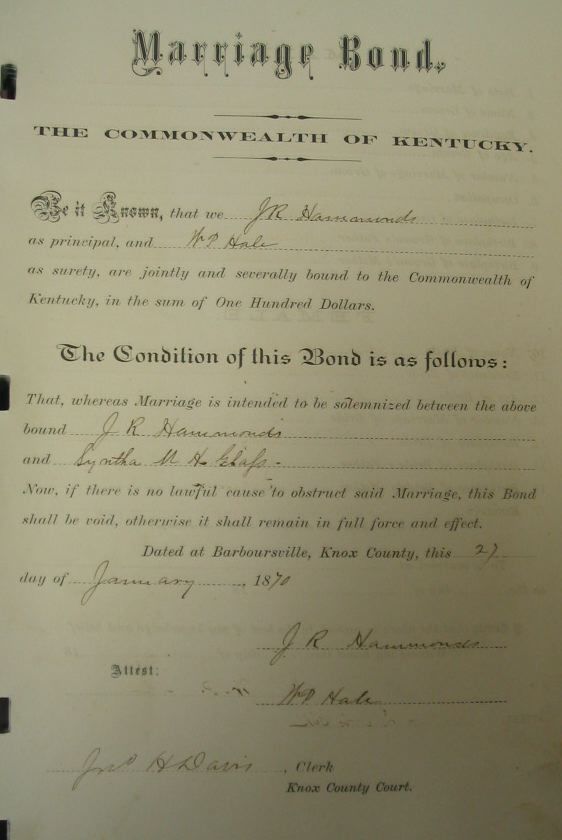 Marriage Bond.
THE COMMONWEALTH OF KENTUCKY.
Be it Known, that we J R Hammonds
as principal, and Wm P Hale
as surety, are jointly and severally bound to the Commonwealth of
Kentucky, in the sum of One Hundred Dollars.
The Condition of this Bond is as follows:
That, whereas Marriage is intended to be solemnized between the above
bound J R Hammonds
and Syntha M H Glass
Now, if there is no lawful cause to obstruct said Marriage, this Bond
shall be void, otherwise it shall remain in full force and effect.
Dated at Barboursville, Knox County, this 27
day of January, 1870
J R Hammonds
Attest:
Wm P Hale
Jno H Davis, Clerk
Knox County Court.